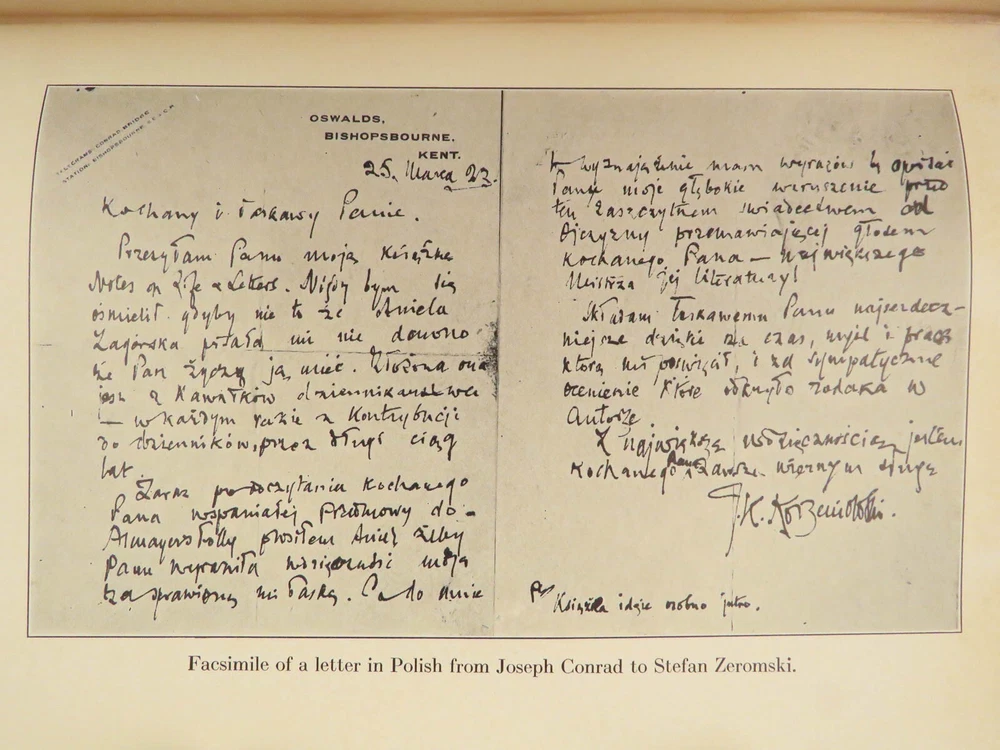 TELEGRAMS: CONRAD, BRIDGE
STATION: BISHOPSBOURNE, S.E. & C.R.
OSWALDS,
BISHOPSBOURNE,
KENT.
25. Marca 23.
Kochany i Łaskawy Panie.
Przesyłam Panu moją książkę
Notes on Life & Letters. Nigdy bym się
ośmielił gdyby nie to że Aniela
Zagórska pisała mi nie dawno
że Pan życzy ją mieć. Złożona ona
jest z Kawałków
— w każdym razie z Kontrybucji
do dzienników, przez długi ciąg
lat.
Zaraz po odczytaniu kochanego
Pana wspaniałej Przedmowy do
Almayer's Folly prosiłem Anielę żeby
Panu wyraziła wdzięczność moją
za sprawioną mi łaskę. Co do mnie
to wyznaję że nie mam wyrazów by opisać
Panu moje głębokie wzruszenie przed
tem zaszczytnem świadectwem od
Ojczyzny przemawiającej głosem
kochanego Pana — największego
Mistrza jej literatury!
Składam Łaskawemu Panu najserdecz-
niejsze dzięki za czas, myśl i pracę
którą mi poświęcił, i za sympatyczne
ocenienie które odkryło rodaka w
Autorze.
Z największą wdzięcznością jestem
kochanego Pana zawsze wiernym sługą
J.K. Korzeniowski.
PS Książka idzie osobno jutro.
Facsimile of a letter in Polish from Joseph Conrad to Stefan Zeromski.